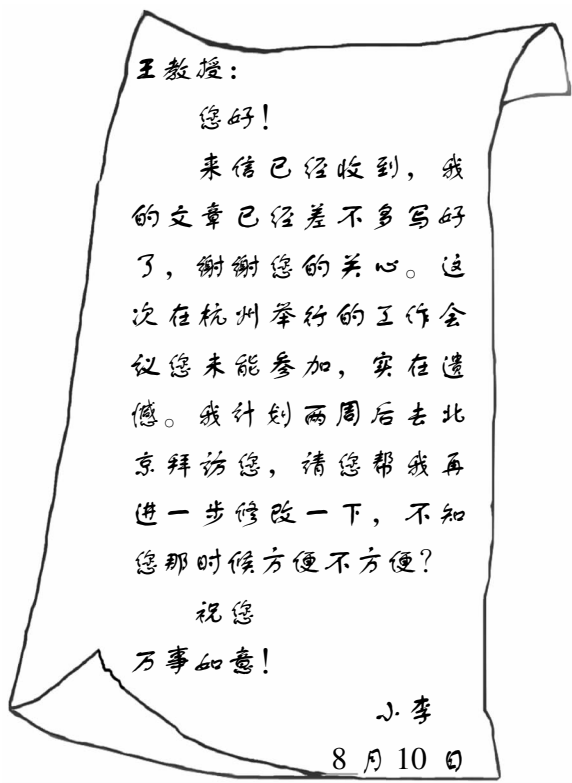 王教授：
您好！
来信已经收到，我
的文章已经差不多写好
了，谢谢您的关心。这
次在杭州举行的工作会
议您未能参加，实在遗
憾。我计划两周后去北
京拜访您，请您帮我再
进一步修改一下，不知
您那时候方便不方便？
祝您
万事如意！
小李
8月10日